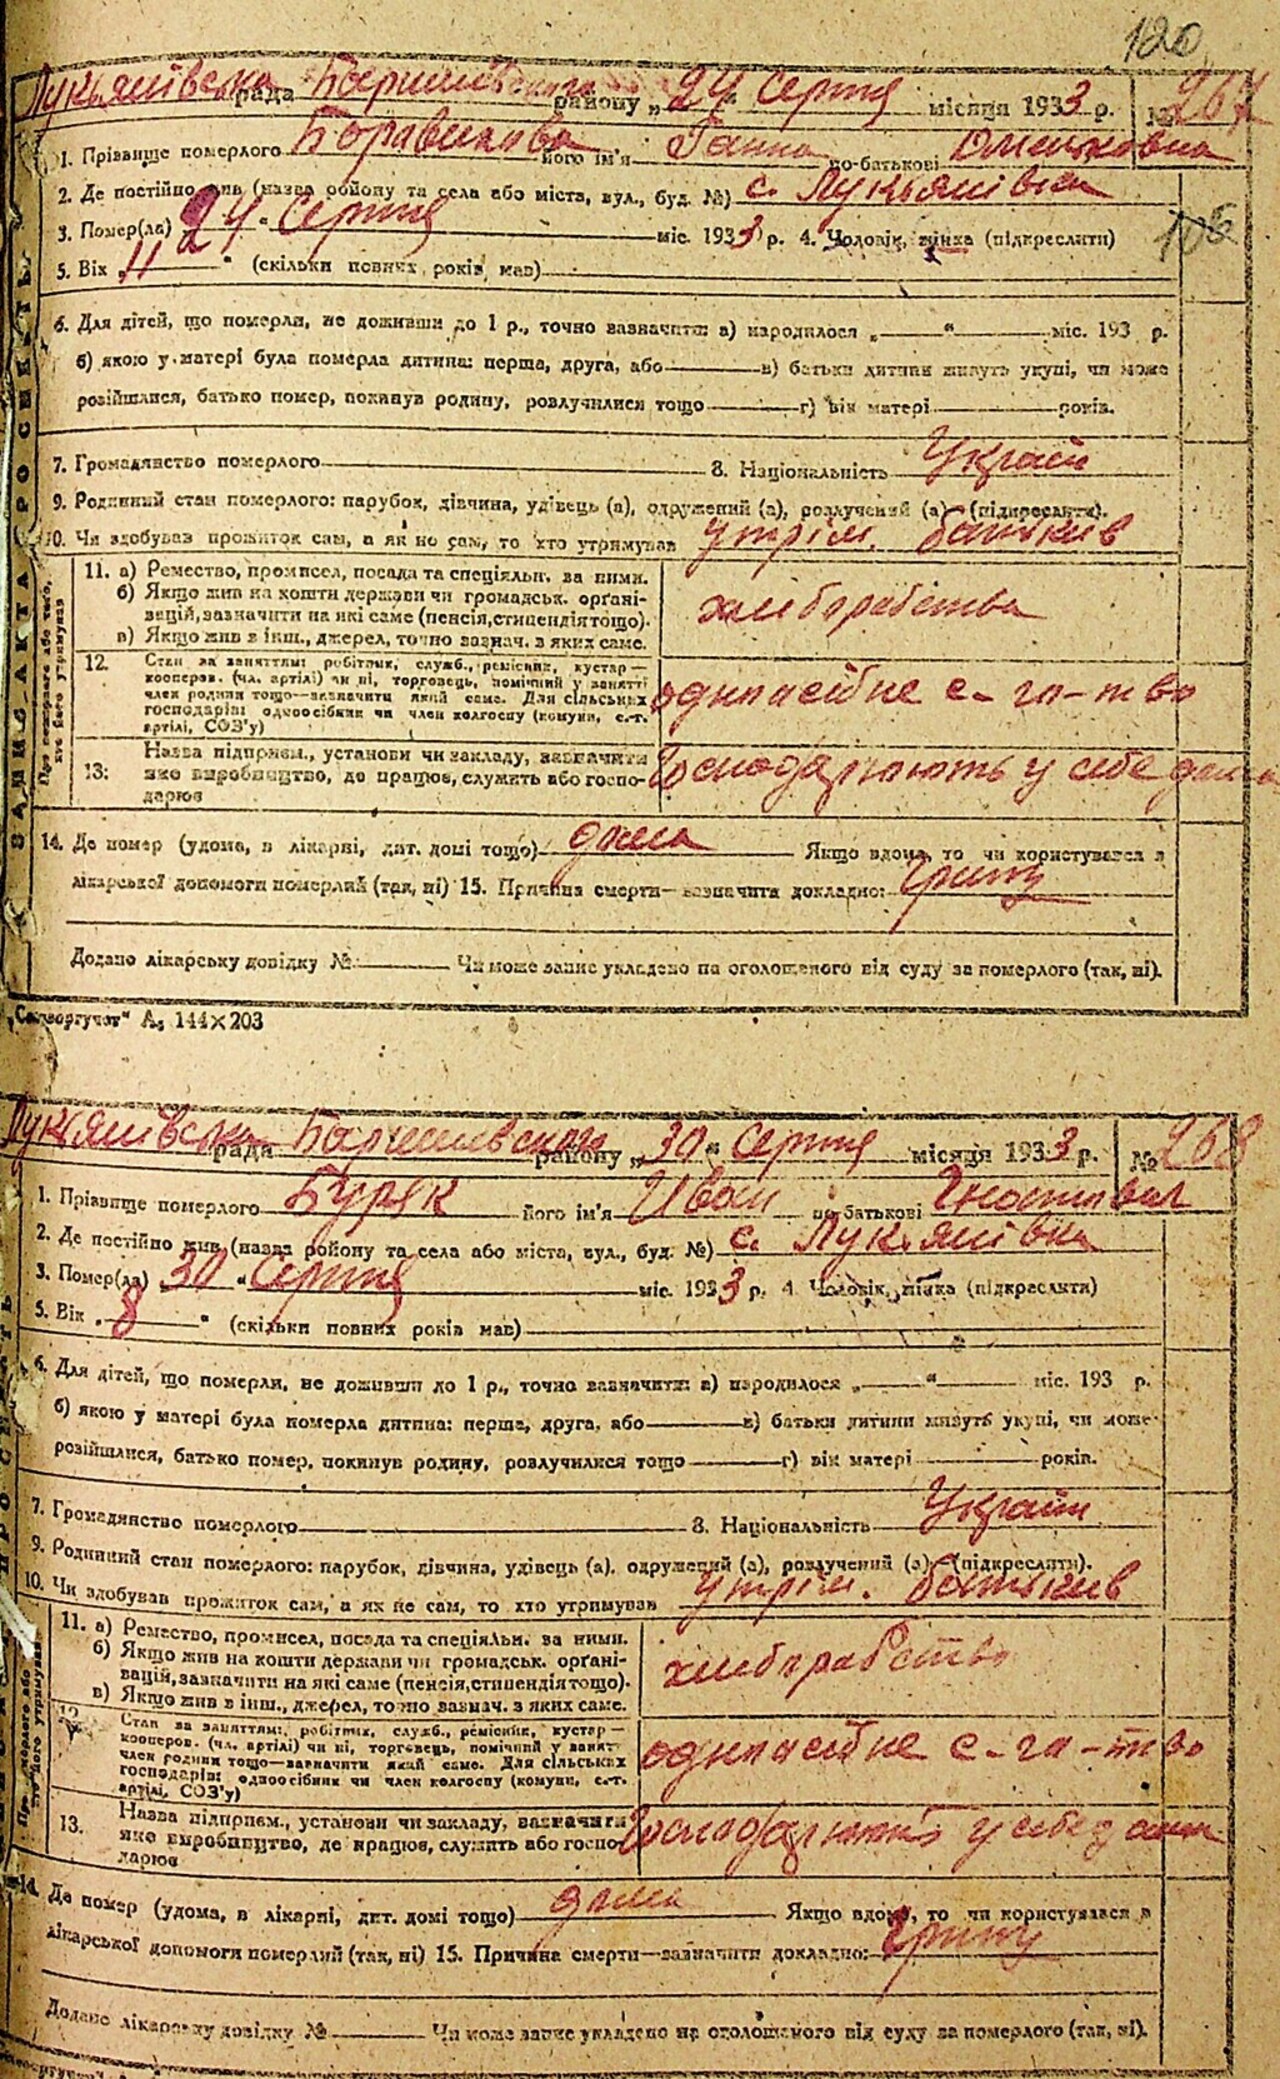 120
Лукьянівска рада Баришевского району „24" Серпня місяця 1933 р. № 267
1. Прізвище померлого Боравикова його ім'я Ганна по-батькові Омельковна
2. Де постійно жив (назва району та села або міста, вул., буд. №) с. Лукьянівка
3. Помер(ла) 24 " Серпня міс. 1933 р. 4. Чоловік, жінка (підкреслити)
106
5. Вік „11" (скільки повних років мав)
6. Для дітей, що померли, не доживши до 1 р., точно зазначити: а) народилося „ " міс. 193 р.
б) якою у матері була померла дитина: перша, друга, або в) батьки дитини живуть укупі, чи може
розійшлися, батько помер, покинув родину, розлучилися тощо г) вік матері років.
7. Громадянство померлого 8. Національність Україн
9. Родинний стан померлого: парубок, дівчина, удівець (а), одружений (а), розлучений (а) (підкреслити).
10. Чи здобував прожиток сам, а як не сам, то хто утримував утрім. батьків
11. а) Ремество, промисел, посада та спеціяльн. за ними.
б) Якщо жив на кошти держави чи громадськ. орґані-
зацій, зазначити на які саме (пенсія, стипендія тощо).
в) Якщо жив з інш., джерел, точно зазнач. з яких саме.
хлеборобства
12. Стан за заняттям: робітник, служб., ремісник, кустар—
кооперов. (чл. артілі) чи ні, торговець, помічний у занятті
член родини тощо—зазначити який саме. Для сільських
господарів: одноосібник чи член колгоспу (комуни, с.-г.
артілі, СОЗ'у)
одноасібне с-го-тво
13. Назва підприєм., установи чи закладу, зазначити
яке виробництво, де працює, служить або госпо-
дарює
Господарюють у себе дома
14. Де помер (удома, в лікарні, дит. домі тощо) дома Якщо вдома, то чи користувався з
лікарської допомоги померлий (так, ні) 15. Причина смерти—зазначити докладно: Грипу
Додано лікарську довідку № Чи може запис укладено на оголошеного від суду за померлого (так, ні).
А₅ 144×203
Лукьянівска рада Баришевского району „30" Серпня місяця 1933 р. № 268
1. Прізвище померлого Буряк його ім'я Иван по-батькові Гнатович
2. Де постійно жив (назва району та села або міста, вул., буд. №) с. Лукьянівка
3. Помер(ла) 30 " Серпня міс. 1933 р. 4. Чоловік, жінка (підкреслити)
5. Вік „8" (скільки повних років мав)
6. Для дітей, що померли, не доживши до 1 р., точно зазначити: а) народилося „ " міс. 193 р.
б) якою у матері була померла дитина: перша, друга, або в) батьки дитини живуть укупі, чи може
розійшлися, батько помер, покинув родину, розлучилися тощо г) вік матері років.
7. Громадянство померлого 8. Національність Україн
9. Родинний стан померлого: парубок, дівчина, удівець (а), одружений (а), розлучений (а) (підкреслити).
10. Чи здобував прожиток сам, а як не сам, то хто утримував утрім. батьків
11. а) Ремество, промисел, посада та спеціяльн. за ними.
б) Якщо жив на кошти держави чи громадськ. орґані-
зацій, зазначити на які саме (пенсія, стипендія тощо).
в) Якщо жив з інш., джерел, точно зазнач. з яких саме.
хлеборобство
12. Стан за заняттям: робітник, служб., ремісник, кустар—
кооперов. (чл. артілі) чи ні, торговець, помічний у занятт
член родини тощо—зазначити який саме. Для сільських
господарів: одноосібник чи член колгоспу (комуни, с.-г.
артілі, СОЗ'у)
одноасібне с-го-тво
13. Назва підприєм., установи чи закладу, зазначити
яке виробництво, де працює, служить або госпо-
дарює
Господарюють у себе дома
14. Де помер (удома, в лікарні, дит. домі тощо) дома Якщо вдома, то чи користувався з
лікарської допомоги померлий (так, ні) 15. Причина смерти—зазначити докладно: Грипу
Додано лікарську довідку № Чи може запис укладено на оголошеного від суду за померлого (так, ні).